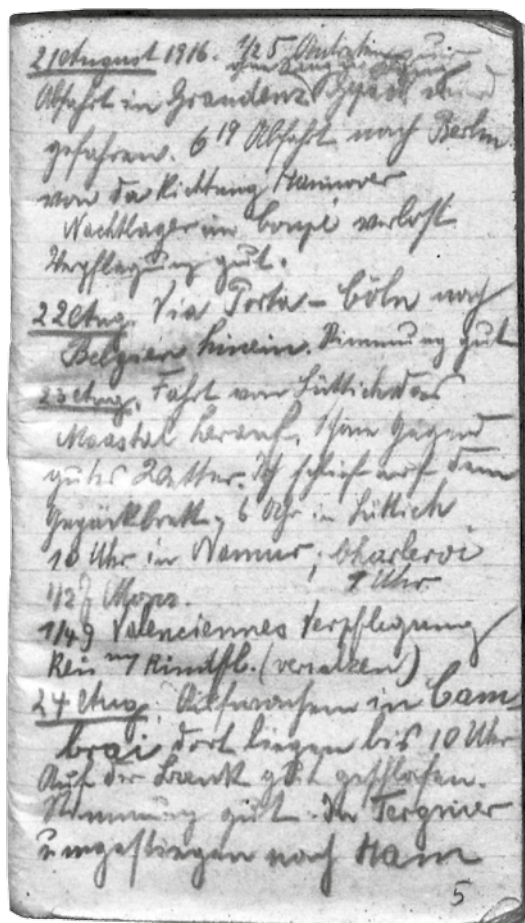 21 August 1916. 1/2 5
Abfahrt in Graudenz
gefahren. 6 19 Abfahrt nach Berlin
von da Richtung Hannover
Nachtlager im Coupé verlost
Verpflegung gut.
22 Aug. Via Porta - Cöln nach
Belgien hinein. Stimmung gut
23 Aug. Fahrt von Lüttich das
Maastal herauf, schöne Gegend
gutes Wetter. Ich schlief auf dem
Gepäckbrett, 6 Uhr in Lüttich
10 Uhr in Namur, Charleroi
1 Uhr
1/2 7 Mons.
1/4 9 Valenciennes Verpflegung
Reis m Rindfl. (versalzen)
24 Aug. Aufwachen in Cam
brai dort liegen bis 10 Uhr
Auf der Bank gut geschlafen.
Stimmung gut. In Tergnier
umgestiegen nach Ham
5